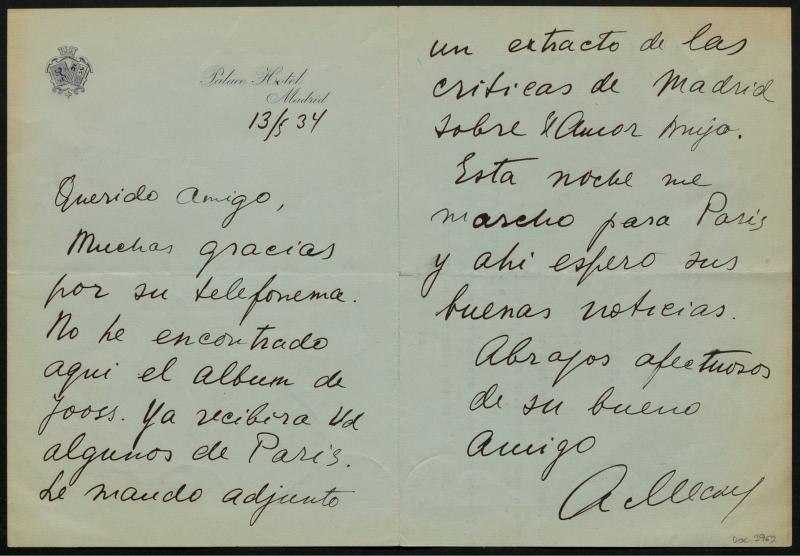 Palace Hotel
Madrid
13/5 34
Querido amigo,
Muchas gracias
por su telefonema.
No he encontrado
aqui el album de
Jooss. Ya recibira Vd
algunos de Paris.
Le mando adjunto
un extracto de las
criticas de Madrid
sobre El Amor Brujo.
Esta noche me
marcho para Paris
y ahi espero sus
buenas noticias.
Abrazos afectuosos
de su bueno
amigo
Doc 2962